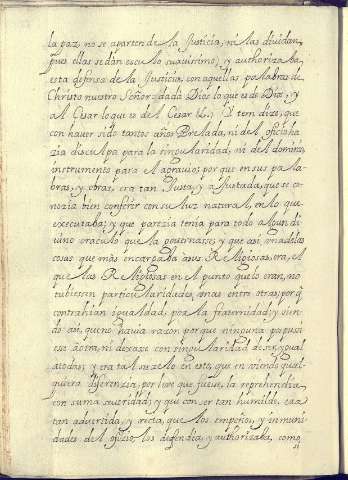 la paz, no se aparten de la Justicia, ni las dividan,
pues ellas se dan osculo suavissimo; y authorizaba
esta defensa de la Justicia, con aquellas palabras de
Christo nuestro Señor: dad a Dios lo que es de Dios, y
al Cesar lo que es de Cesar &c. Y tem dize, que
con haver sido tantos años Prelada, ni del oficio ha
zia disculpa para la singularidad, ni del dominio
instrumento para el agravio; por que en sus pala
bras, y obras, era tan Justa, y ajustada, que se co
nozia bien conferir con su luz natural, en lo que
executaba; y que parezia tenia para todo algun di
vino oraculo que la governasse; y que assi, una de las
cosas que mas encargaba à sus Religiosas, era, el
que las Religiosas en el punto que lo eran, no
tubiessen particularidades, unas entre otras; por q̃
contrahian igualdad, por la fraternidad; y sien
do assi, que no havia razon por que ninguna
esse agora, ni dexasse con singularidad de ser ygual
a todas; y era tal su zelo en esto, que en viendo qual
quiera diferenzia, por leve que fuesse, la reprehendia
con suma severidad; y que con ser tan humilde, era
tan advertida, y recta, que los empeños, y inmuni
dades del ofizio, los defendia, y authorizaba, como